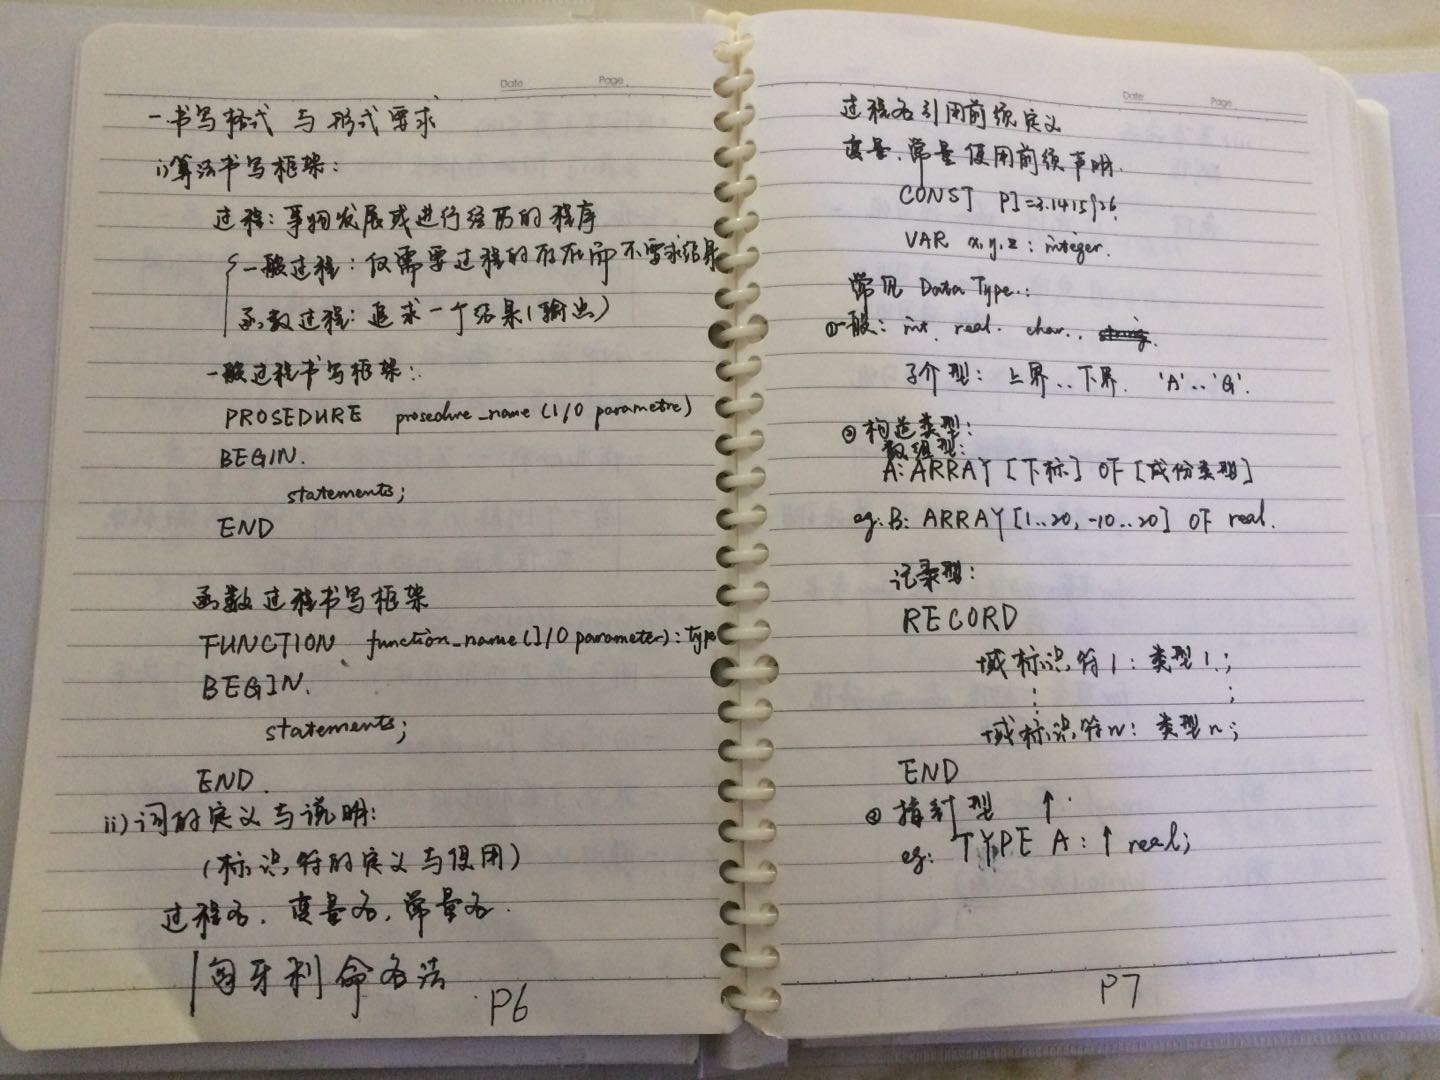 Date Page
一.书写格式与形式要求
i)算法书写框架:
过程:事物发展或进行经历的程序
一般过程:仅需要过程的存在而不要求结果
函数过程:追求一个结果(输出)
一般过程书写框架:
PROSEDURE prosedure_name (I/O parametre)
BEGIN.
statements;
END
函数过程书写框架
FUNCTION function_name(I/O parameter): type
BEGIN.
statements;
END.
ii)词的定义与说明:
(标识符的定义与使用)
过程名.变量名,常量名.
匈牙利命名法
P6
Date Page
过程名引用前须定义
变量.常量使用前须声明.
CONST PI=3.1415926.
VAR x,y,z: integer.
常见 Data Type:
①一般: int. real. char., string.
子介型:上界..下界. 'A'..'G'.
②构造类型:
数组型:
A: ARRAY [下标] OF [成份类型]
eg: B: ARRAY [1..20, -10..20] OF real.
记录型:
RECORD
域标识符1: 类型1;
⋮ ;
域标识符n: 类型n;
END
指针型 ↑.
eg: TYPE A: ↑ real;
P7